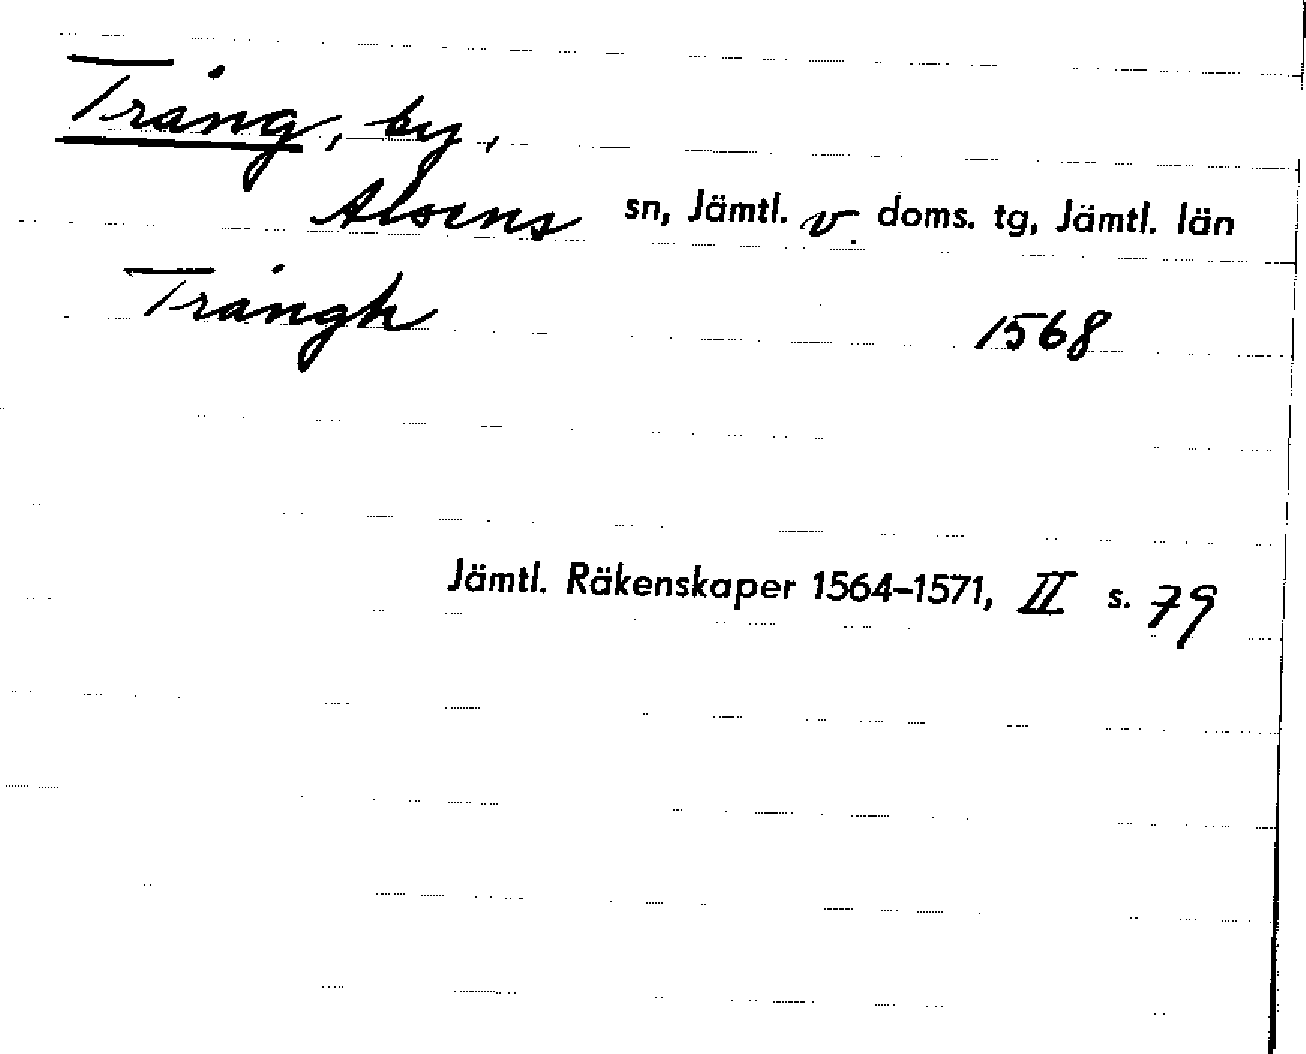 Trång, by,
Alsens sn, Jämtl. v. doms. tg, Jämtl. län
Trångh 1568
Jämtl. Räkenskaper 1564–1571, II s. 79